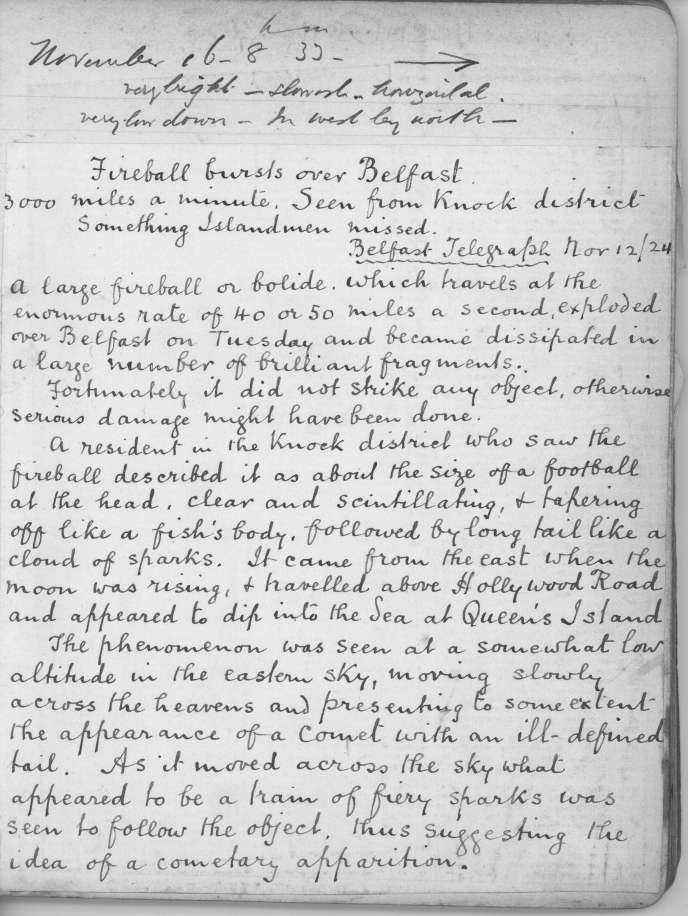 h m
November 16 - 8 33 -
very bright - slowish - horizontal.
very low down - In west by north -
Fireball bursts over Belfast.
3000 miles a minute. Seen from Knock district
Something Islandmen missed.
Belfast Telegraph Nov 12/24
A large fireball or bolide. which travels at the
enormous rate of 40 or 50 miles a second, exploded
over Belfast on Tuesday and became dissipated in
a large number of brilliant fragments.
Fortunately it did not strike any object, otherwise
serious damage might have been done.
A resident in the Knock district who saw the
fireball described it as about the size of a football
at the head, clear and scintillating, & tapering
off like a fish's body, followed by long tail like a
cloud of sparks. It came from the east when the
moon was rising, & travelled above Hollywood Road
and appeared to dip into the Sea at Queen's Island
The phenomenon was seen at a somewhat low
altitude in the eastern sky, moving slowly
across the heavens and presenting to some extent
the appearance of a Comet with an ill-defined
tail. As it moved across the sky what
appeared to be a train of fiery sparks was
seen to follow the object, thus suggesting the
idea of a cometary apparition.